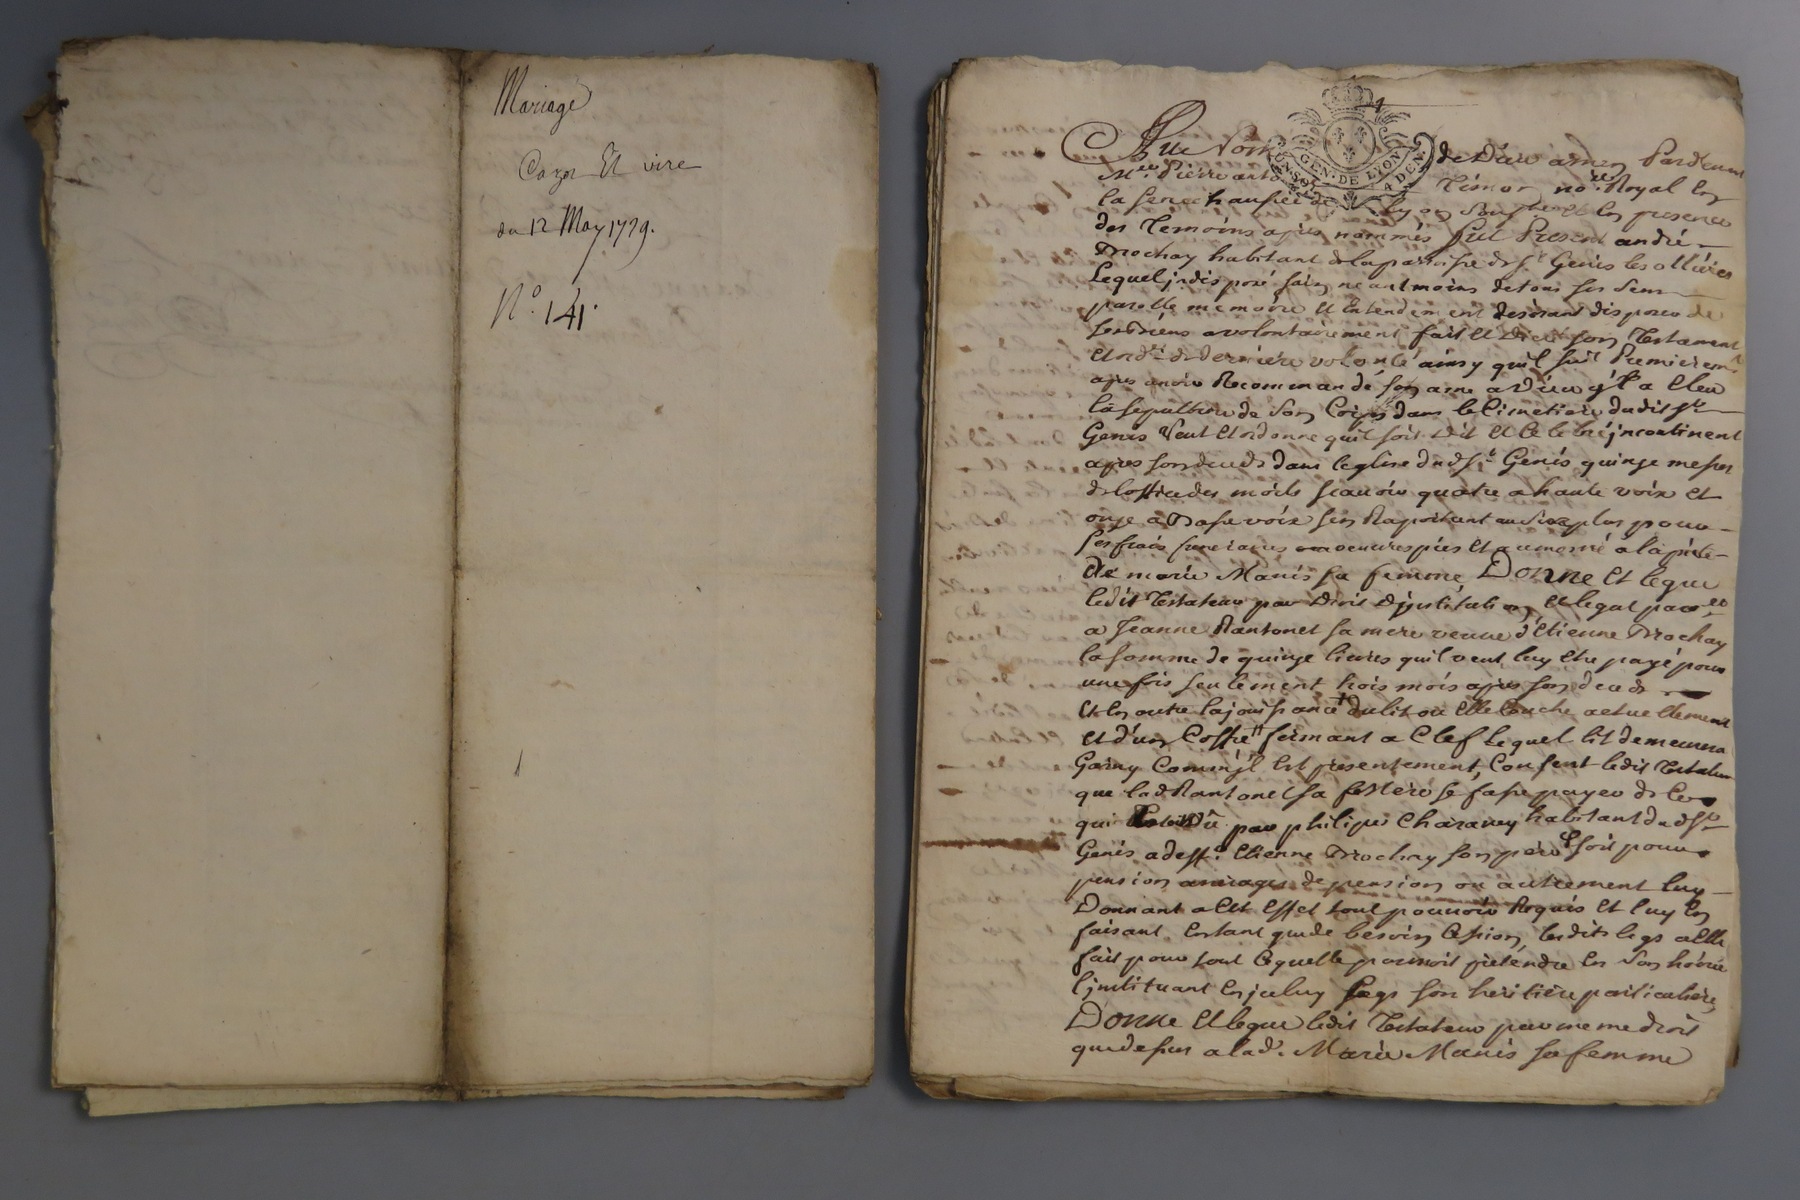 Mariage
Cazot Et vire
du 12 May 1739.
N.º 141.
GEN. DE LYON
4 DEN.
Au Nom de Dieu amen Pardevant
Mre Pierre anto Timon nore Royal En
la senechaussée de Lyon soussigné et En presence
des Temoins apres nommés fut Present andré
Brochay habitant de la parroisse de St Genis les ollières
Lequel jndisposé sain neantmoins de tous ses sens
parolle memoire et Entendement desirant disposer de
ses Biens a volontairement fait et Dicté son Testament
et ordce de derniere volonté ainsy quil suit Premierement
apres avoir Recommandé son ame a Dieu qu'il a Eleu
la sepulture de son Corps dans le Cimetiere dudit St
Genis Veut et ordonne quil soit Dit et Celebré jncontinent
apres son deceds dans leglise dud St Genis quinze messes
de loffice des morts scavoir quatre a haute voix et
onze a Basse voix sen Raportant au surplus pour
ses frais funeraires œuvres pies et aumosne a la pieté
de marie Manis sa femme, Donne et legue
ledit Testateur par Droit Djnstitution et legat parer
a Jeanne Rantonet sa mere veuve d'Etienne Brochay
la somme de quinze livres quil veut luy etre payé pour
une fois seulement trois mois apres son deceds
et En outre la jouissance du lit ou Elle Couche actuellement
et d'un Coffre fermant a Clef Lequel lit demeurera
Garny Comm'jl Est presentement, Consent ledit Testateur
que lad Rantonet sa mere se fasse payer de Ce
qui Dû par philipe Charavey habitant dud St
Genis a deff.t Etienne Brochay son pere soit pour
pension arrerages de pension ou autrement luy
Donnant a Cet Effet tout pouvoir Requis et luy En
faisant Entant que de besoin Cession, lesdits legs a Elle
fait pour tout Cequelle pourroit pretendre En son hoirie
l'jnstituant En jceluy legs son heritiere particuliere,
Donne et legue ledit Testateur par meme droit
que dessus a lad. Marie Manis sa femme